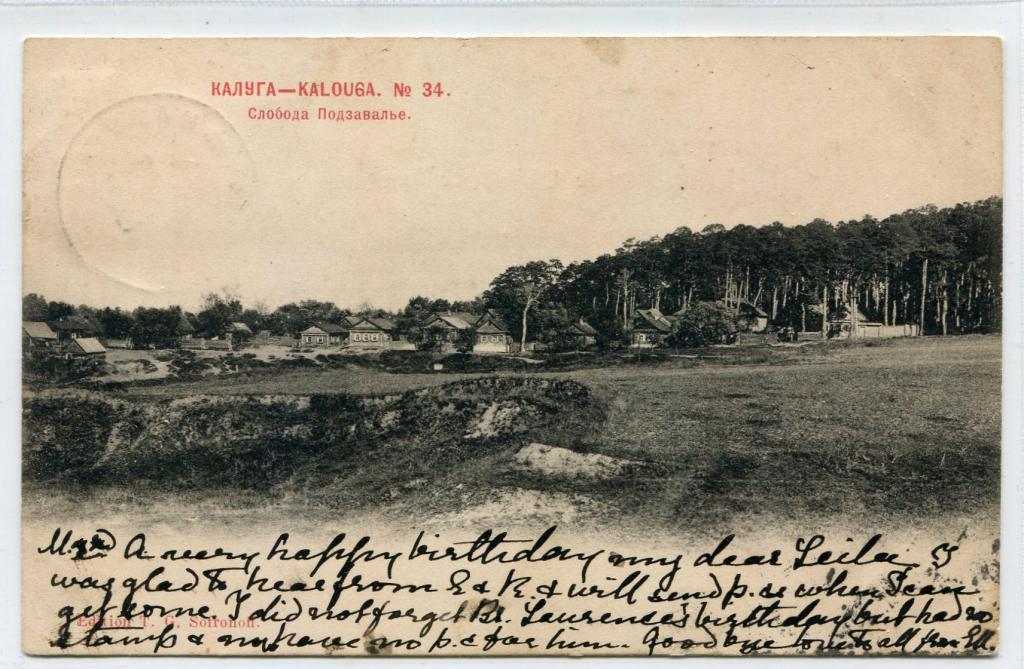 КАЛУГА—KALOUGA. № 34.
Слобода Подзавалье.
A very happy birthday my dear Leila I
was glad to hear from E & R & will send p. cs when I can
get some. I did not forget Laurense's birthday but had no
stamp & may have no p. c for him. Good bye to all from
Edition T. G. Soironoff.